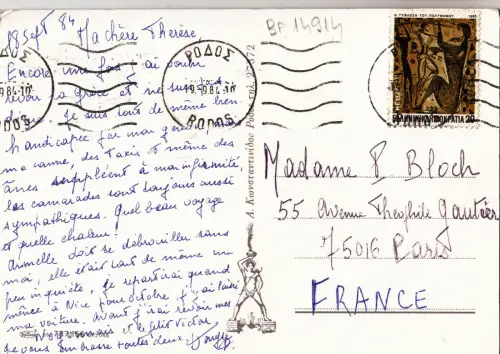 18 Sept 84
Ma chère Thérèse,
Encore une fois j'ai voulu
revoir la Grèce et ne suis pas
Je suis tout de même bien
handicapée par mon genou
ma canne, des taxis et même des
ânes suppléent à mon infirmité
les camarades sont toujours aussi
sympathiques. Quel beau voyage
et quelle chaleur!
Armelle doit se débrouiller sans
moi, elle était tout de même un
peu inquiète. Je repartirai quand
même à Nice fin octobre, j'ai laissé
ma voiture. avant j'irai revoir mes
et le petit Victor
Je vous embrasse toutes deux.
BF 14914
ΡΟΔΟΣ
19.9.84-10
RODOS
ΡΟΔΟΣ
19.9.84-10
RODOS
Η ΤΥΦΛΩΣΗ ΤΟΥ ΠΟΛΥΦΗΜΟΥ 1983
ΕΛΛΗΝΙΚΗ ΔΗΜΟΚΡΑΤΙΑ 20
Δ. Κωνσταντινίδης Ρόδος τηλ. 22.872
Madame P Bloch
55 Avenue Théophile Gautier
75016 Paris
FRANCE